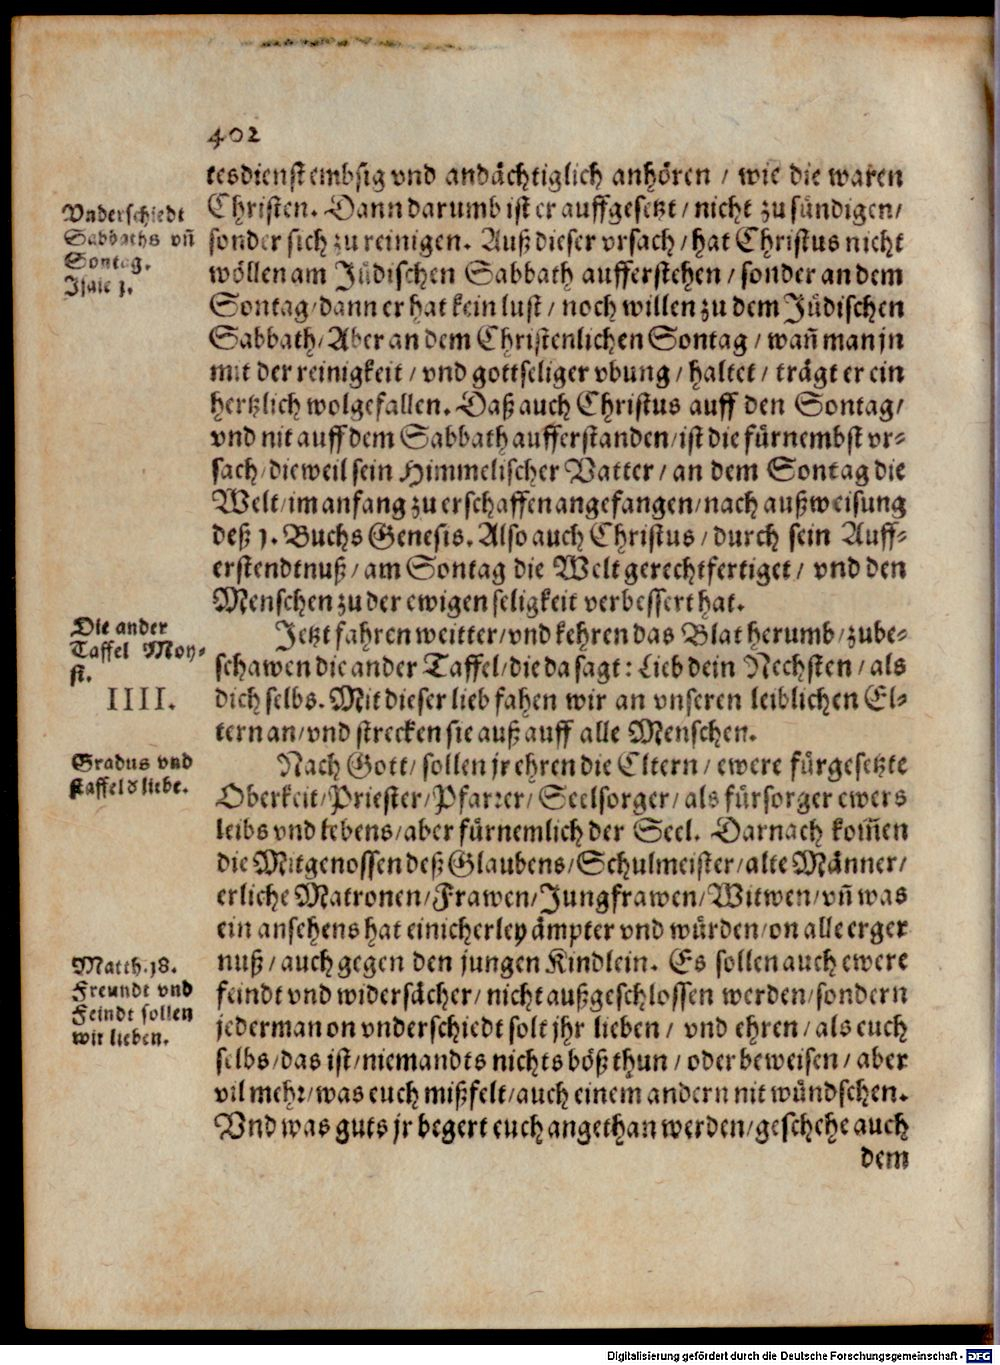 402
tesdienst embsig vnd andächtiglich anhören / wie die waren
Christen. Dann darumb ist er auffgesetzt / nicht zu sündigen /
sonder sich zu reinigen. Auß dieser vrsach / hat Christus nicht
wöllen am Jüdischen Sabbath aufferstehen / sonder an dem
Sontag / dann er hat kein lust / noch willen zu dem Jüdischen
Sabbath / Aber an dem Christenlichen Sontag / wañ man jn
mit der reinigkeit / vnd gottseliger vbung / haltet / trägt er ein
hertzlich wolgefallen. Daß auch Christus auff den Sontag /
vnd nit auff dem Sabbath aufferstanden / ist die fürnembst vr-
sach / dieweil sein Himmelischer Vatter / an dem Sontag die
Welt / im anfang zu erschaffen angefangen / nach außweisung
deß 1. Buchs Genesis. Also auch Christus / durch sein Auff-
erstendtnuß / am Sontag die Welt gerechtfertiget / vnd den
Menschen zu der ewigen seligkeit verbessert hat.
Jetzt fahren weitter / vnd kehren das Blat herumb / zube-
schawen die ander Taffel / die da sagt: Lieb dein Nechsten / als
dich selbs. Mit dieser lieb fahen wir an vnseren leiblichen El-
tern an / vnd strecken sie auß auff alle Menschen.
Nach Gott / sollen jr ehren die Eltern / ewere fürgesetzte
Oberkeit / Priester / Pfarrer / Seelsorger / als fürsorger ewers
leibs vnd lebens / aber fürnemlich der Seel. Darnach kom̃en
die Mitgenossen deß Glaubens / Schulmeister / alte Männer /
erliche Matronen / Frawen / Jungfrawen / Witwen / vñ was
ein ansehens hat einicherley ämpter vnd würden / on alle erger
nuß / auch gegen den jungen Kindlein. Es sollen auch ewere
feindt vnd widersächer / nicht außgeschlossen werden / sondern
jederman on vnderschiedt solt jhr lieben / vnd ehren / als euch
selbs / das ist / niemandts nichts böß thun / oder beweisen / aber
vil mehr / was euch mißfelt / auch einem andern nit wündschen.
Vnd was guts jr begert euch angethan werden / geschehe auch
dem
Vnderschiedt
Sabbaths vñ
Sontag.
Isaie 1.
Die ander
Taffel Moy-
si.
IIII.
Gradus vnd
staffel d' liebe.
Matth. 18.
Freundt vnd
Feindt sollen
wir lieben.
Digitalisierung gefördert durch die Deutsche Forschungsgemeinschaft - DFG